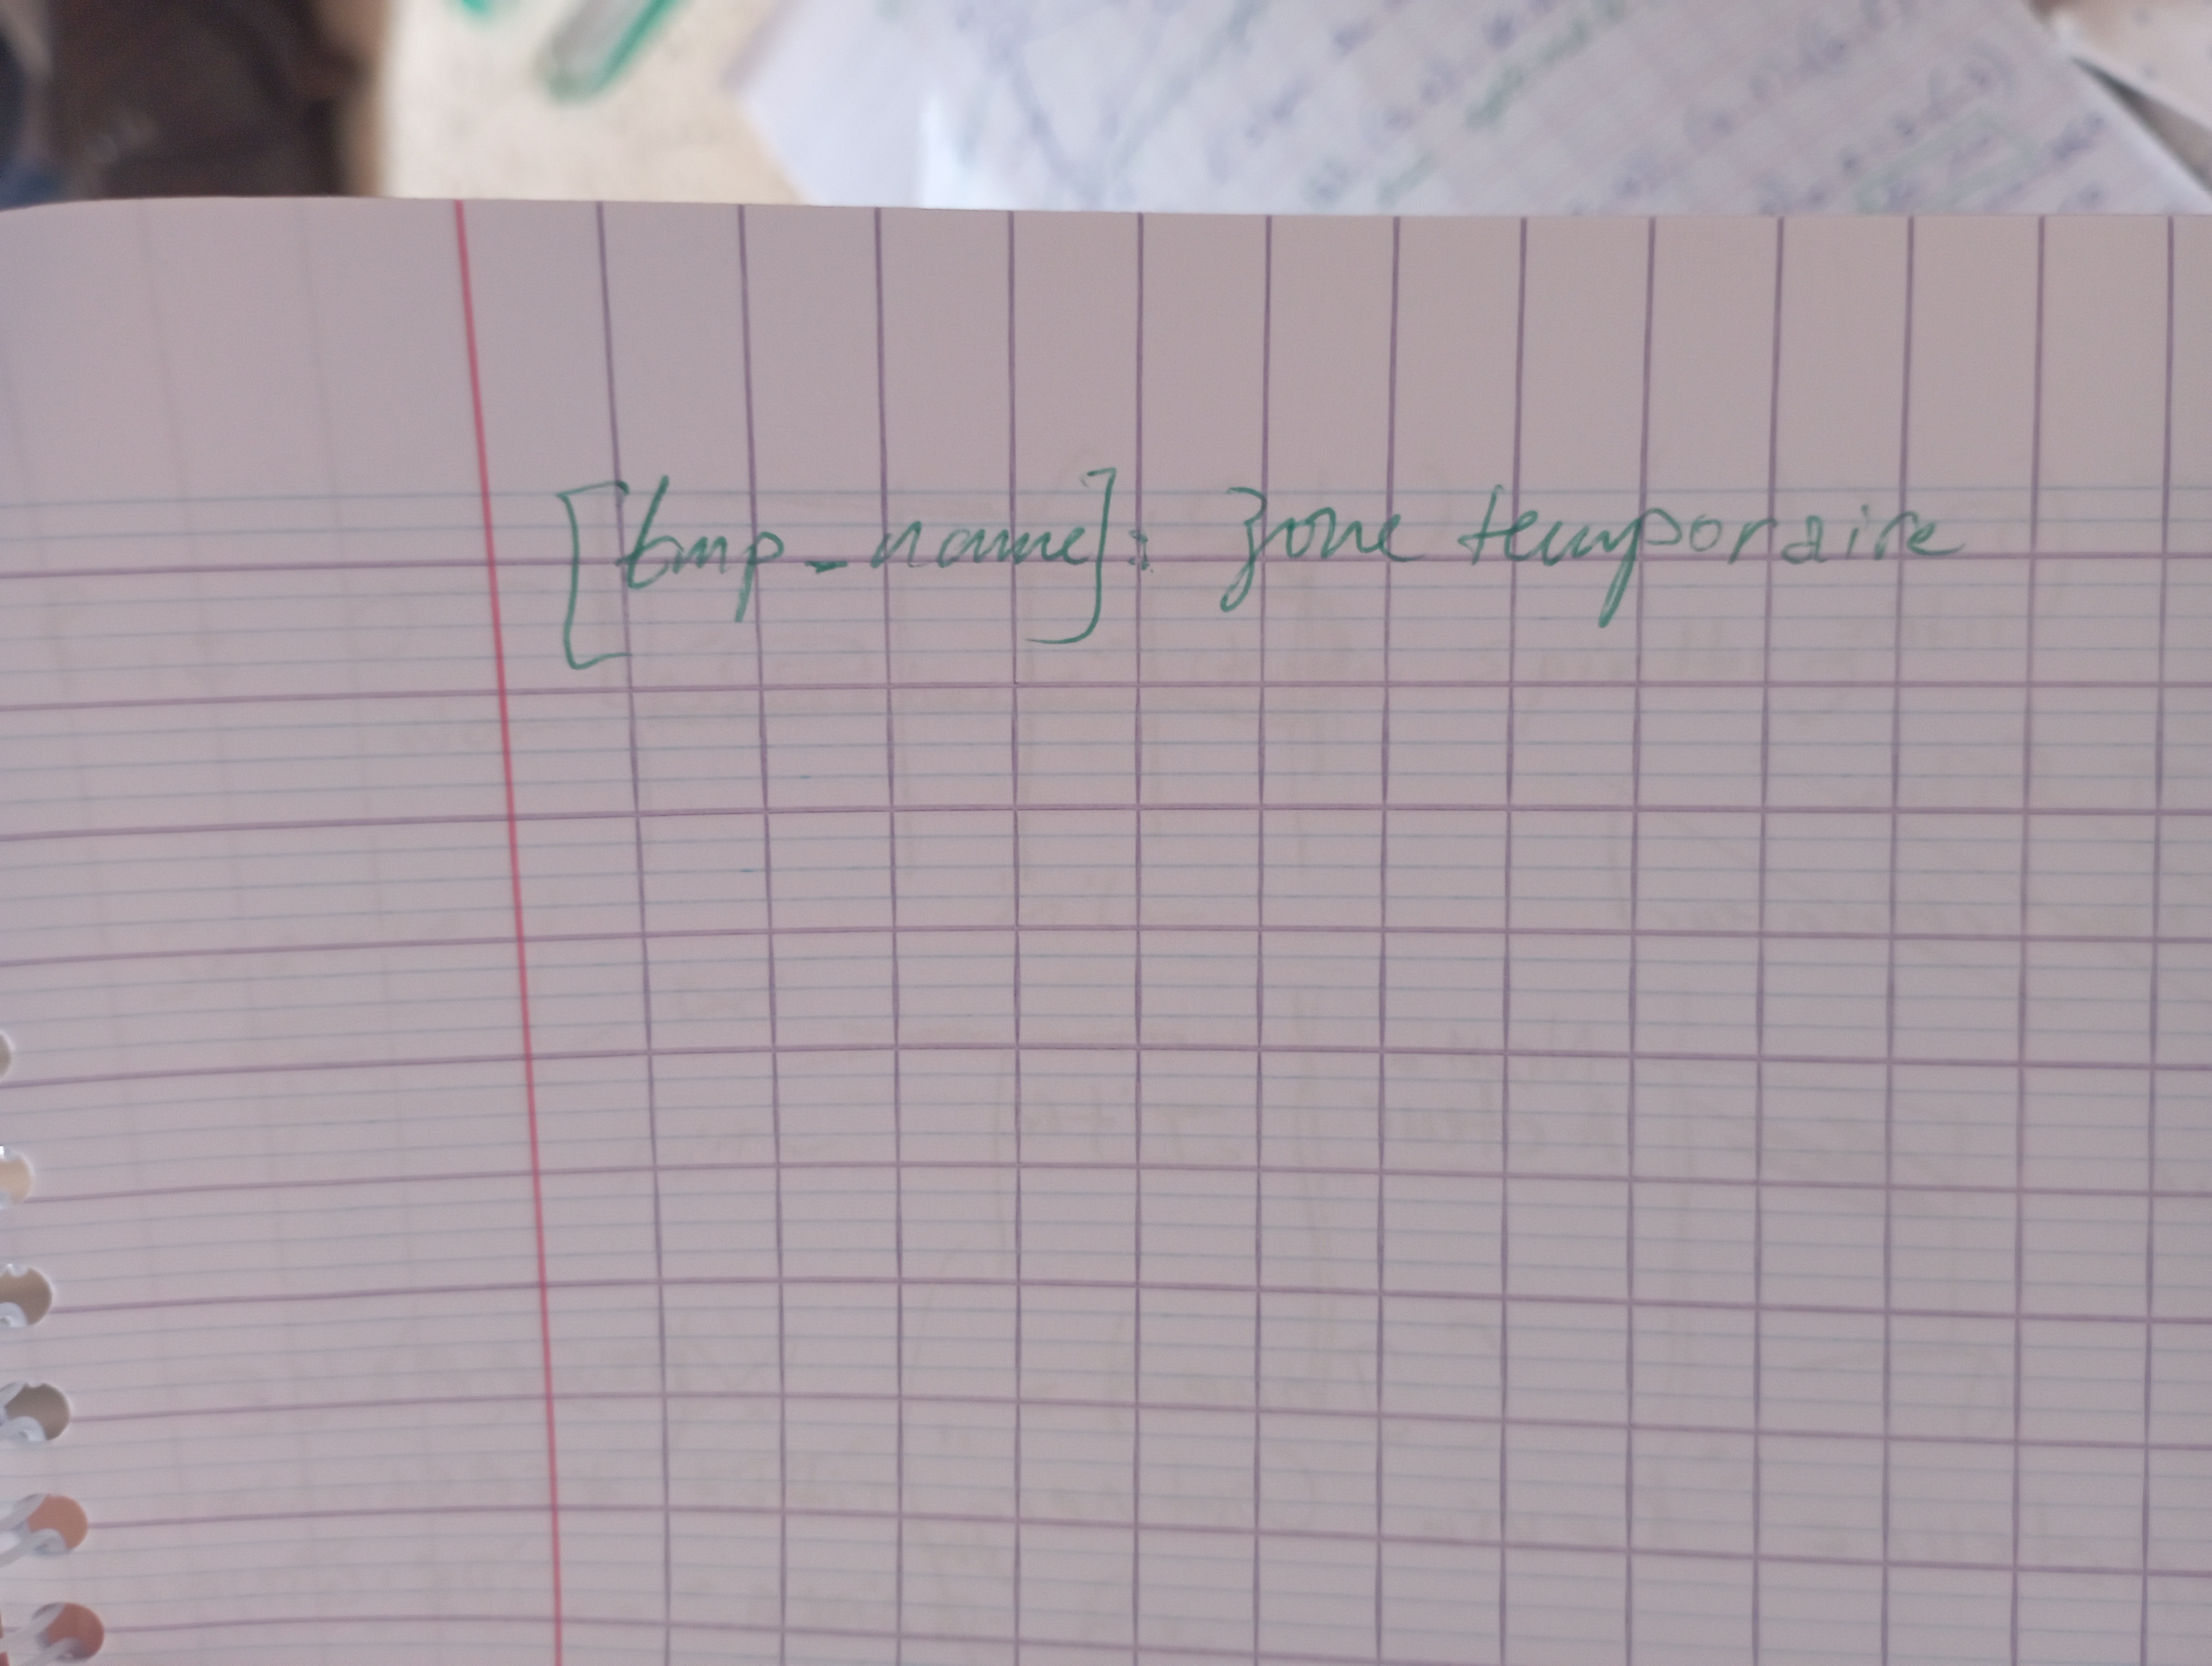 [tmp-name]: zone temporaire